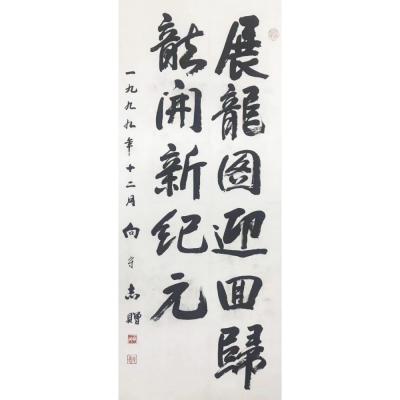 展龍图迎回歸
龍开新纪元
一九九九年十二月向守志赠